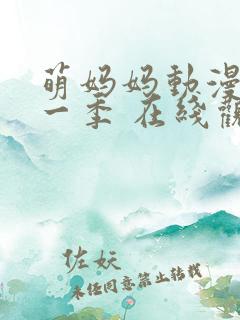 萌妈妈動漫
一季 在线觀
佐妖
未经同意禁止转载